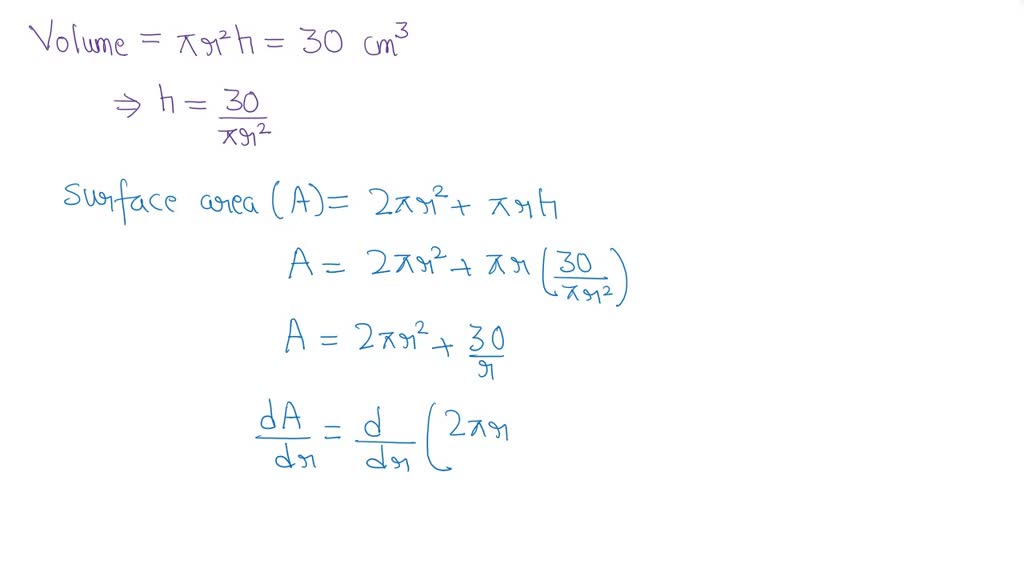 Volume = πr²h = 30 cm³
⇒ h = 30/πr²
Surface area (A) = 2πr² + πrh
A = 2πr² + πr(30/πr²)
A = 2πr² + 30/r
dA/dr = d/dr (2πr